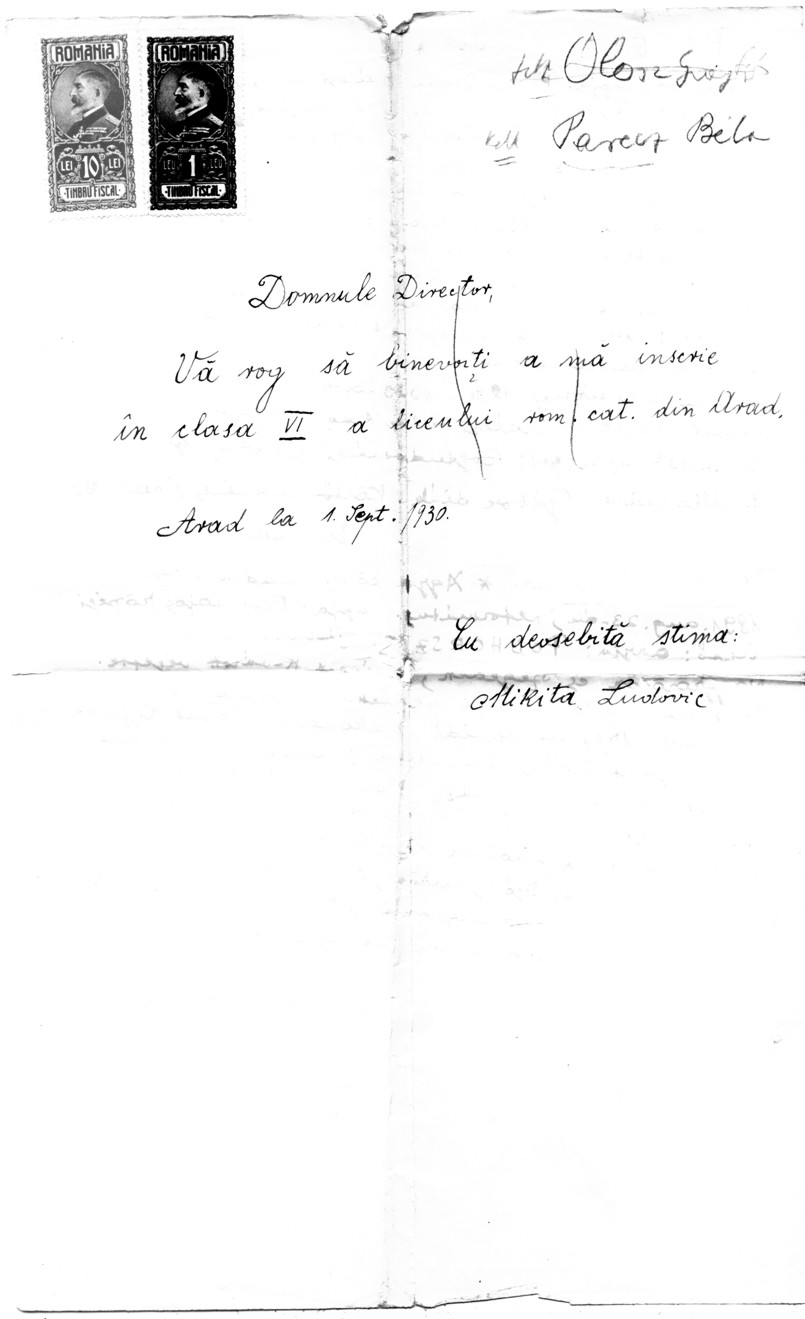 ROMANIA ROMANIA
LEI 10 LEI LEU 1 LEU
·TIMBRU FISCAL· ·TIMBRU FISCAL·
Olosz
Parecz Béla
Domnule Director,
Vă rog să binevoiți a mă inscrie
în clasa VI a liceului rom. cat. din Arad.
Arad la 1. Sept. 1930.
Cu deosebită stima:
Mikita Ludovic